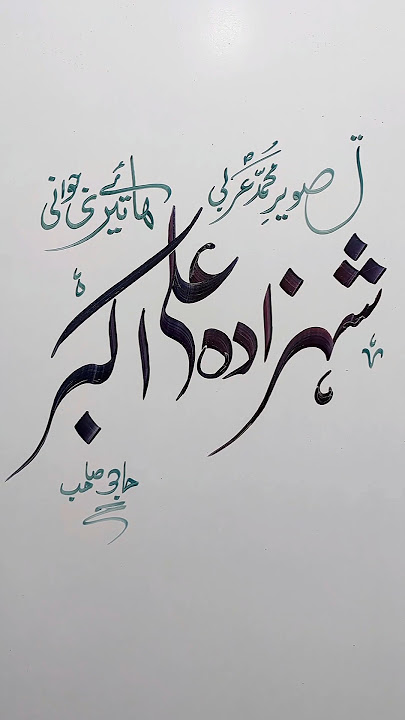 تصویرِ محمدؐ عربی ہائے تیری جوانی
شہزادہ علی اکبر
حاجی صاحب